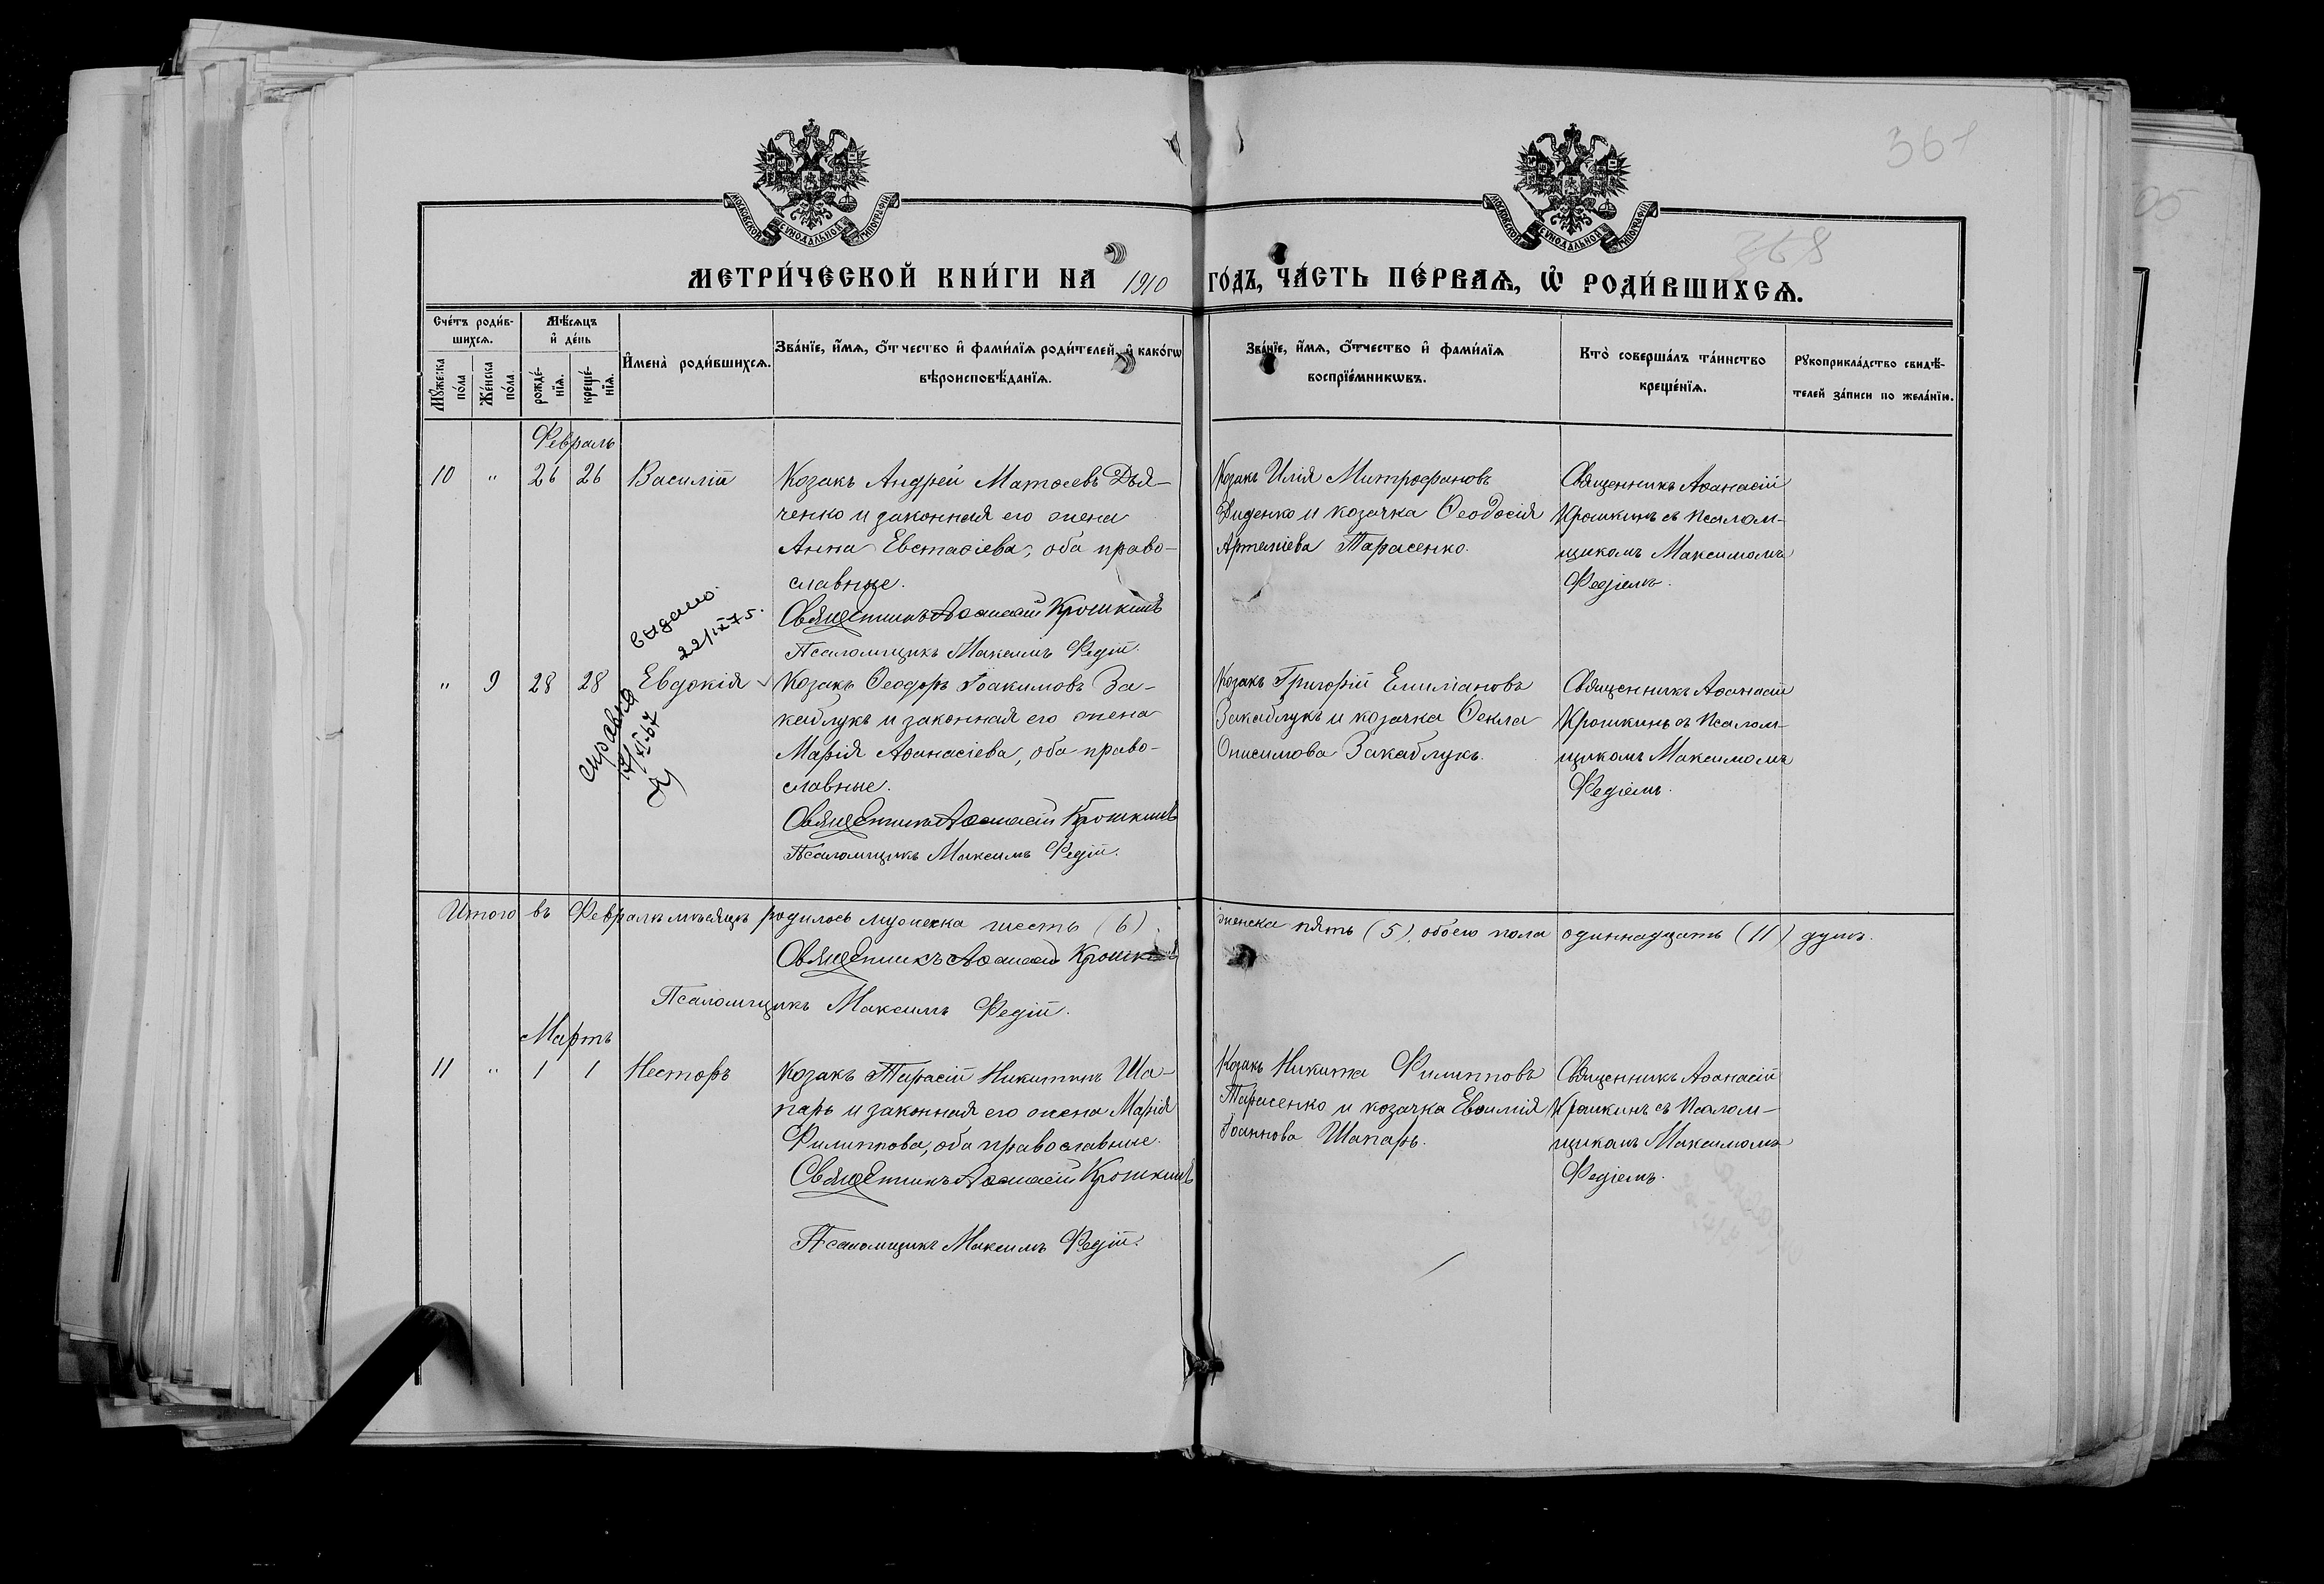 361
368
МОСКОВСКОЙ СѴНОДАЛЬНОЙ ТИПОГРАФІИ
МОСКОВСКОЙ СѴНОДАЛЬНОЙ ТИПОГРАФІИ
МЕТРИ́ЧЕСКОЙ КНИ́ГИ НА 1910 ГО́ДЪ, ЧА́СТЬ ПЕ́РВАѦ, Ѡ҆ РОДИ́ВШИХСѦ.
Сче́тъ роди́в-
шихсѧ.
Мꙋ́жеска по́ла
Же́нска по́ла
Мѣ́сѧцъ и҆ де́нь
рожде́-нїѧ.
креще́-нїѧ.
И҆мена̀ роди́вшихсѧ.
Зва́нїе, и҆́мѧ, ѻ҆́тчество и҆ фами́лїѧ роди́телей, и҆ како́гѡ
вѣроисповѣ́данїѧ.
Зва́нїе, и҆́мѧ, ѻ҆́тчество и҆ фами́лїѧ
воспрїе́мникѡвъ.
Кто̀ соверша́лъ та́инство
креще́нїѧ.
Рꙋкоприкла́дство свидѣ́-
телей за́писи по жела́нїю.
Февраль
10 " 26 26 Василій
Козакъ Андрей Матѳеевъ Дья-
ченко и законная его жена
Анна Евстаѳіева, оба право-
славные.
Священникъ Аѳанасій Крошкинъ
Псаломщикъ Максимъ Федій.
Козакъ Илія Митрофановъ
Диденко и козачка Ѳеодосія
Артеміева Тарасенко.
Священникъ Аѳанасій
Крошкинъ съ псалом-
щикомъ Максимомъ
Федіемъ.
выдано
22/IX 75.
" 9 28 28 Евдокія
справка
17/XI-67
Козакъ Ѳеодоръ Іоакимовъ За-
каблукъ и законная его жена
Марія Аѳанасіева, оба право-
славные.
Священникъ Аѳанасій Крошкинъ
Псаломщикъ Максимъ Федій.
Козакъ Григорій Емиліановъ
Закаблукъ и козачка Ѳекла
Онисимова Закаблукъ.
Священникъ Аѳанасій
Крошкинъ съ псалом-
щикомъ Максимомъ
Федіемъ.
Итого въ Февралѣ мѣсяцѣ родилось мужеска шесть (6) женска пять (5), обоего пола одиннадцать (11) душъ.
Священникъ Аѳанасій Крошкинъ
Псаломщикъ Максимъ Федій.
Мартъ
11 " 1 1 Несторъ
Козакъ Тарасій Никитинъ Ша-
парь и законная его жена Марія
Филиппова, оба православные.
Священникъ Аѳанасій Крошкинъ
Псаломщикъ Максимъ Федій.
Козакъ Никита Филипповъ
Тарасенко и козачка Евѳимія
Іоаннова Шапарь.
Священникъ Аѳанасій
Крошкинъ съ псалом-
щикомъ Максимомъ
Федіемъ.